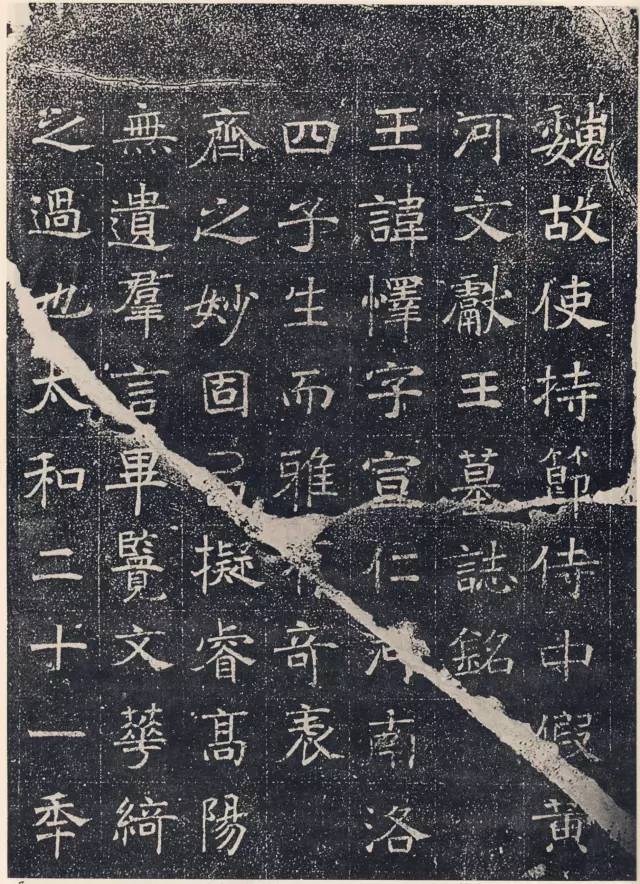 魏故使持節侍中假黄
河文獻王墓誌銘
王諱懌字宣仁河南洛
四子生而雅有奇表
齊之妙固㠯擬睿髙陽
無遺羣言畢覽文華綺
之過也太和二十一秊